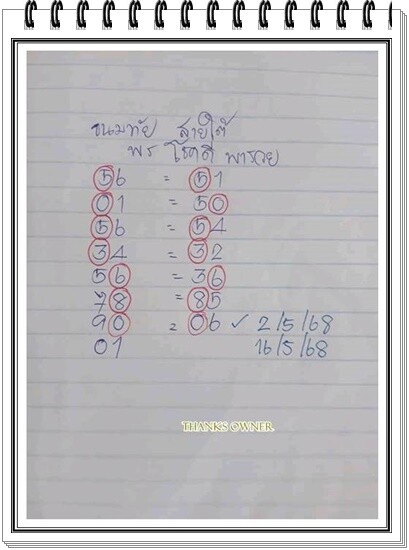 ขนมทัย สายใต้
พร โชคดี พารวย
56 = 51
01 = 50
56 = 54
34 = 32
56 = 36
78 = 85
90 = 06 ✓ 2/5/68
01 16/5/68
THANKS OWNER